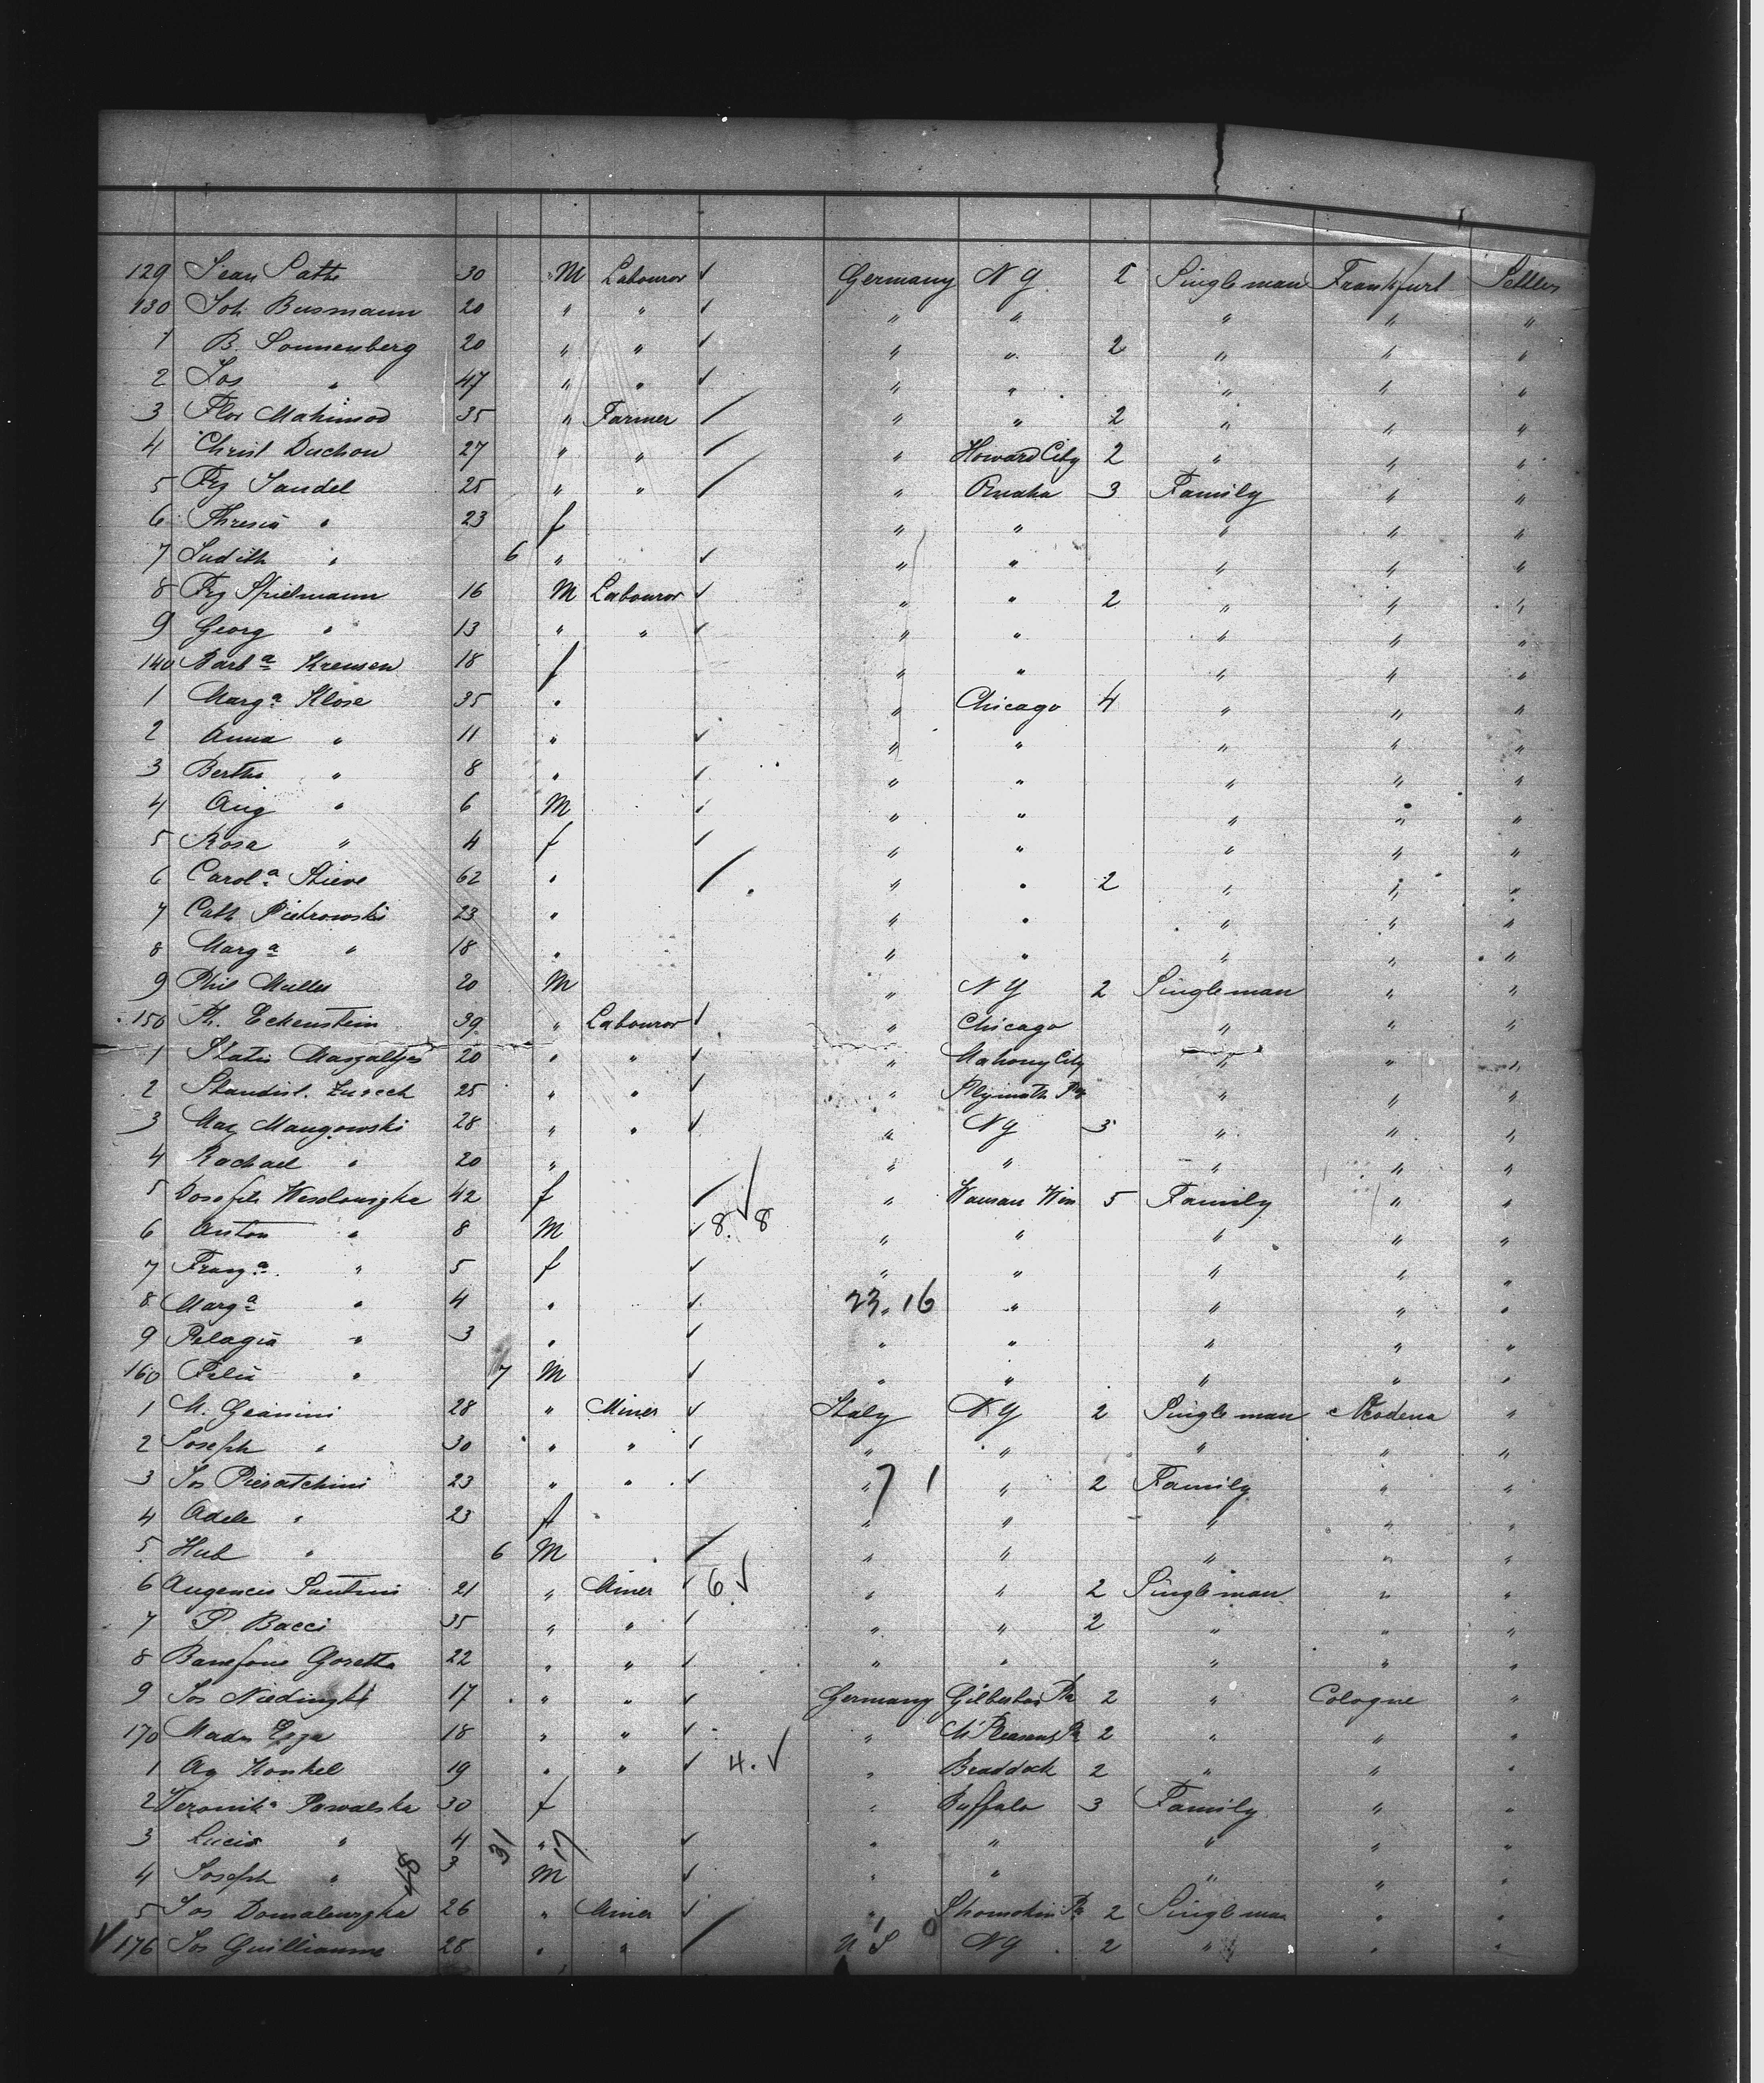 129 Jean Path 30 M Labouror ✓ Germany NY 1 Single man Frankfurt Settler
130 Joh. Busmann 20 " " ✓ " " " " "
1 B. Sonnenberg 20 " " ✓ " " 2 " " "
2 Jos " 47 " " ✓ " " " " "
3 Flor 35 " Farmer / " " 2 " " "
4 Christ Duchon 27 " " / " Howard City 2 " " "
5 Frz Sandel 25 " " / " Omaha 3 Family " "
6 Thresia " 23 f " " " " "
7 Judith " 6 " ✓ " " " " "
8 Frz Spielmann 16 M Labouror ✓ " " 2 " " "
9 Georg " 13 " " ✓ " " " " "
140 Barbª Kremsen 18 f " " " " "
1 Margª Klose 35 " " Chicago 4 " " "
2 Anna " 11 " ✓ " " " " "
3 Bertha " 8 " ✓ " " " " "
4 Aug " 6 M ✓ " " " " "
5 Rosa " 4 f ✓ " " " " "
6 Carolª Stieve 62 " / " " 2 " " "
7 Cath Pietrowski 23 " " " " " "
8 Margª " 18 " " " " " "
9 Phil Muller 20 M " NY 2 Single man " "
150 Ph. Eckenstein 39 " Labouror ✓ " Chicago " " "
1 20 " " ✓ " Mahony City " " "
2 Standisl. 25 " " ✓ " Plymoth Pa " " "
3 Mangowski 28 " " ✓ " NY 3 " " "
4 Rachael " 20 " " " " " "
5 Josefh 42 f / ✓ " Wausau Wis 5 Family " "
6 Anton " 8 M ✓ 8. 8 " " " " "
7 Franzª " 5 f ✓ " " " " "
8 Margª " 4 " ✓ 23. 16 " " " "
9 Pelagia " 3 " ✓ " " " " "
160 Felix " 7 M ✓ " " " " "
1 M. Geanini 28 " Miner ✓ Italy NY 2 Single man Modena "
2 Joseph " 30 " " ✓ " " " " "
3 Jos Pieratchini 23 " " ✓ " 7 1 " 2 Family " "
4 Adele " 23 f " " " " "
5 Hub " 6 M / " " " " "
6 Santini 21 " Miner ✓ 6 ✓ " " 2 Single man " "
7 P. Bacci 35 " " ✓ " " 2 " " "
8 Goretta 22 " " ✓ " " " " "
9 Jos 17 " " ✓ Germany Pa 2 " Cologne "
170 18 " " ✓ " Pa 2 " " "
1 Ag Honkel 19 " " ✓ 4. ✓ " Braddock 2 " " "
2 Veronikª Powalska 30 f " Buffalo 3 Family " "
3 Lucia " 4 31 " 17 ✓ " " " " "
4 Joseph " 48 3 M ✓ " " " " "
5 Jos 26 " Miner ✓ " Shomokin Pa 2 Single man " "
✓ 176 Jos Guilliaume 28 " " / U S NY 2 " " "